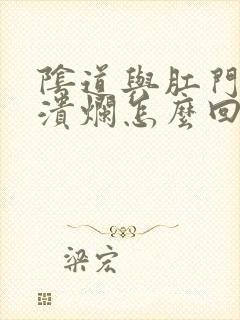 陰道與肛門
潰爛怎麼回
梁宏